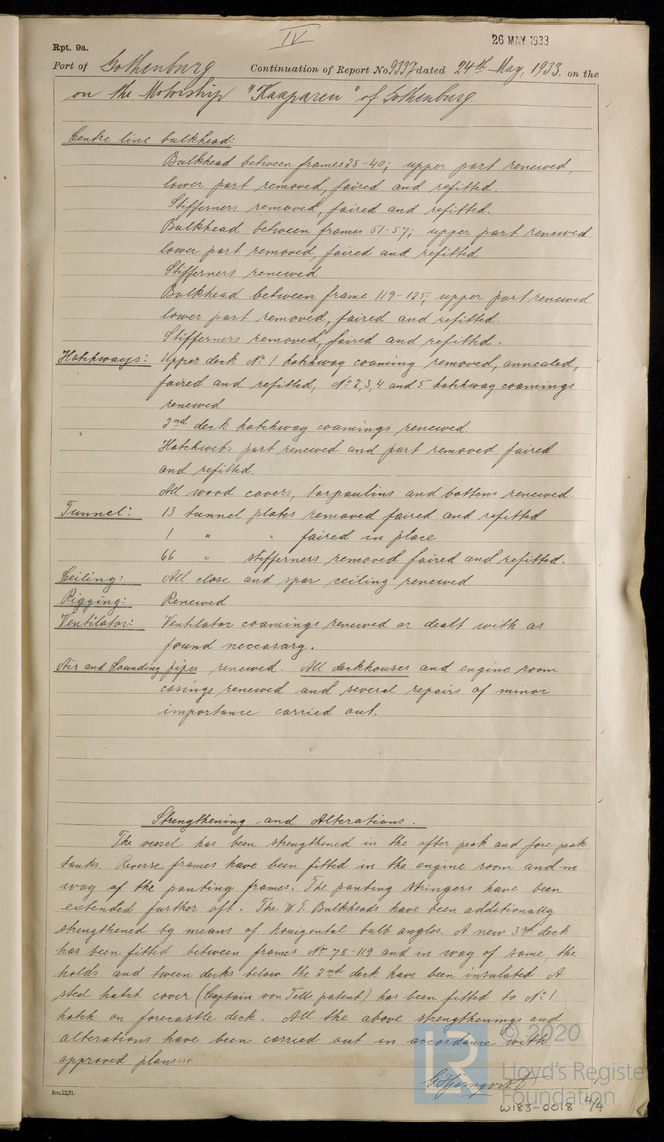 IV
26 MAY 1933
Rpt. 9a.
Port of Gothenburg Continuation of Report No 9337 dated 24th May, 1933. on the
on the Motorship "Kaaparen" of Gothenburg
Centre line bulkhead:
Bulkhead between frames 38-40; upper part renewed,
lower part removed, faired and refitted.
Stifferners removed, faired and refitted.
Bulkhead between frames 51-57; upper part renewed
lower part removed, faired and refitted
Stifferners renewed
Bulkhead between frame 119-125, upper part renewed
lower part removed, faired and refitted.
Stifferners removed, faired and refitted.
Hatchways: Upper deck No 1 hatchway coaming removed, annealed,
faired and refitted, No 2, 3, 4 and 5 hatchway coamings
renewed
2nd deck hatchway coamings renewed
part renewed and part removed faired
and refitted
All wood covers, tarpaulins and battens renewed
Tunnel: 13 tunnel plates removed faired and refitted
1 " " faired in place
66 " stifferners removed faired and refitted.
Ceiling: All close and spar ceiling renewed
Rigging: Renewed
Ventilator: Ventilator coamings renewed or dealt with as
found neccesary.
Air and Sounding pipes renewed. All deckhouses and engine room
casings renewed and several repairs of minor
importance carried out.
Strengthening and Alterations.
The vessel has been strengthened in the after peak and fore peak
tanks. Reverse frames have been fitted in the engine room and in
way of the panting frames. The panting stringers have been
extended further aft. The W.T. Bulkheads have been additionally
strengthened by means of horizontal bulb angles. A new 3rd deck
has been fitted between frames No 78-119 and in way of same the
holds and tween decks below the 2nd deck have been insulated. A
steel hatch cover (Captain von Tells patent) has been fitted to No 1
hatch on forecastle deck. All the above strengthenings and
alterations have been carried out in accordance with
approved plans.
© 2020
LR
Lloyd's Register
Foundation
W183-0018 4/4